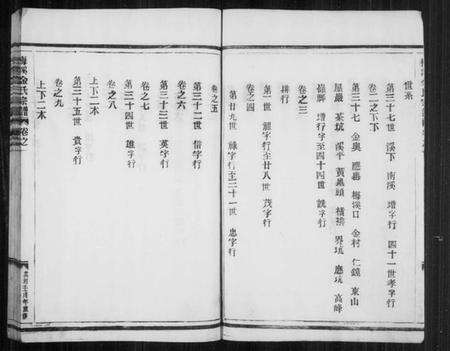 世系
第三十七世 溪下 南溪 增字行 四十一世孝字行
卷二之下下
第三十七 金奥 應嘉 梅溪口 金村 仁錢 東山
屋嚴 茶坑 溪平 黃 頭 橫排 界坑 應坑 高畔
 增行字至四十四世 誠字行
卷之三
排行
卷之四
第一世 字行至廿八世 茂字行
第廿九世 祿字行至三十一世 忠字行
卷之五
第三十二世 信字行
卷之六
第三十三世 英字行
卷之七
第三十四世 雄字行
卷之八
上下二本
第三十五世 貴字行
卷之九
上下二本
梅溪金氏宗譜 卷之